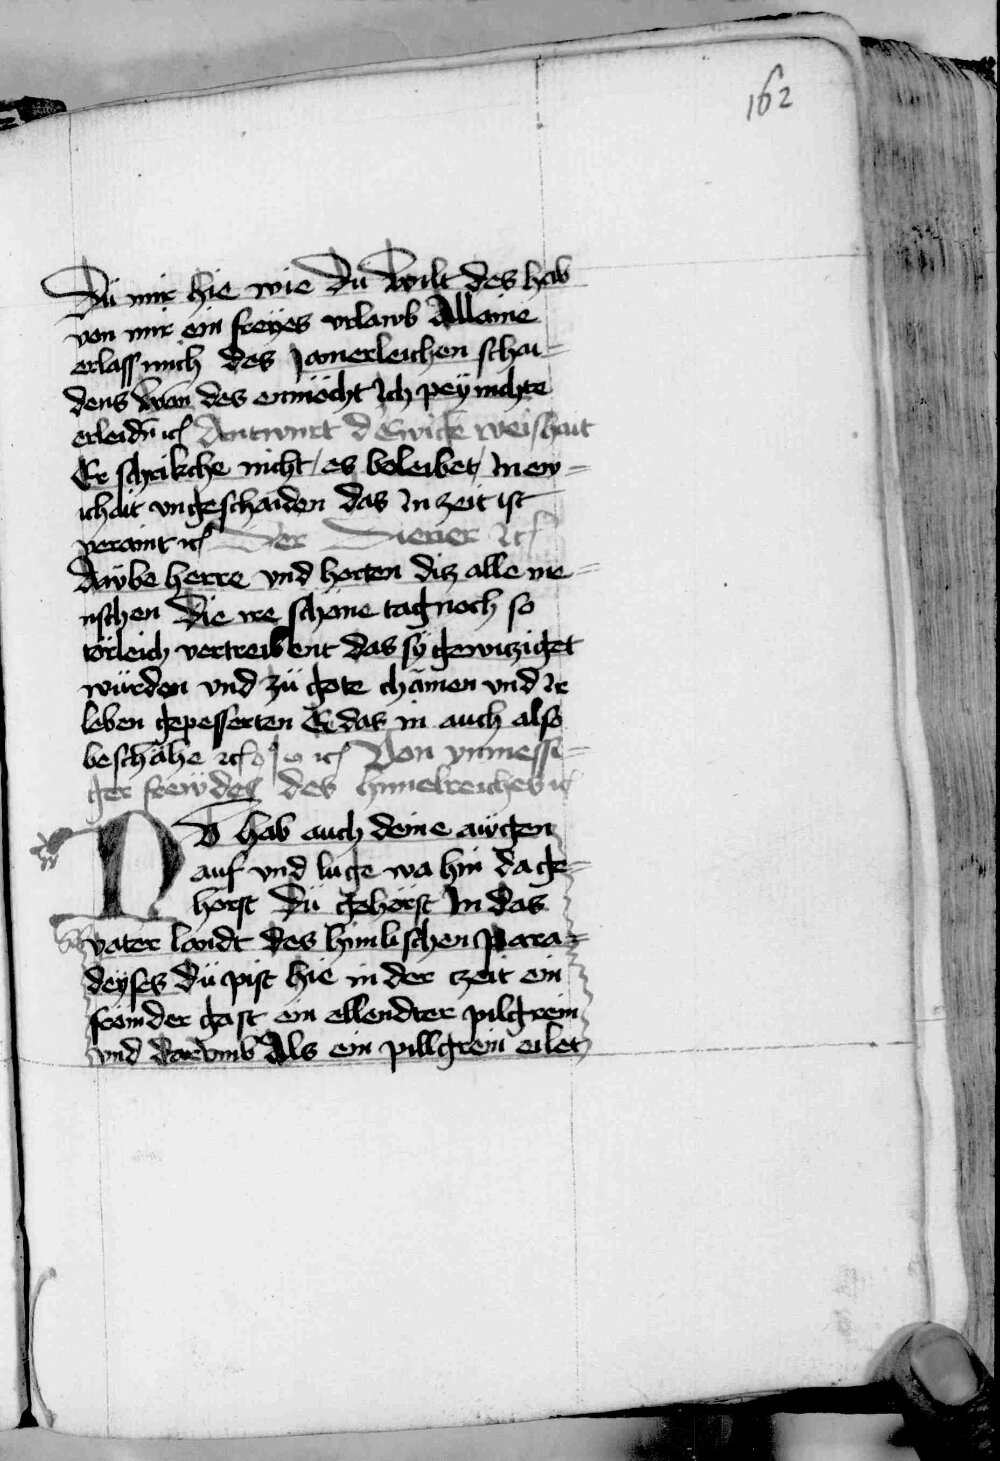 162
Dü mir hie wie Dü Wilt des hab
von mir ein freyes vrlawb Allaine
erlass mich des Jamerleichen schai=
dens Wan des enmöcht Ich peÿ nichte
erleidn̄ ꝛcͭ Antwurt d Ewige weishait
Er schrikche nicht / es beleibet / In ew=
ichait vngeschaiden das In zeit ist
veraint ꝛcͭ Der Diener ꝛcͭ
Awbe herre vnd horten diz alle me=
nschen Die ire schöne tag noch so
törleich vertreibent das sÿ gewicziget
würden vnd zü gote chämen vnd Ir
leben gepesserten Ee das in auch also
beschähe ꝛcͭ ꝛcͭ Von vnmessi=
ger frewdes des himelreiches ꝛcͭ
Nv hab auch deine awgen
auf vnd luge wa hin da ge=
horst Dü gehörst In das
vater landt des himlischen para=
deÿses Dü pist hie in der czeit ein
frömder gast ein ellendter pilgrein
vnd Darvmb Als ein pillgrein eilet